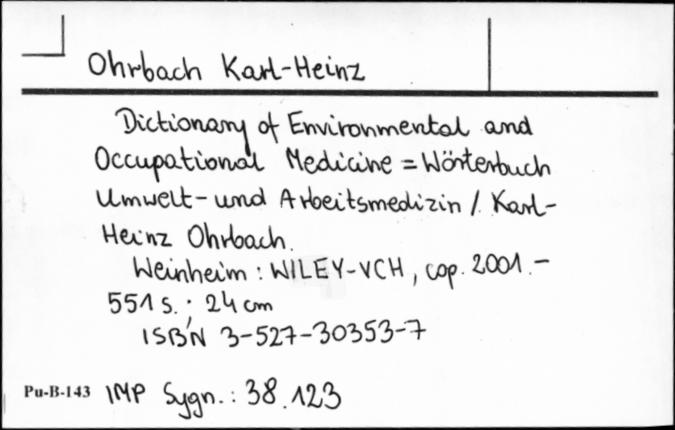 Ohrbach Karl-Heinz
Dictionary of Environmental and
Occupational Medicine = Wörterbuch
Umwelt- und Arbeitsmedizin / Karl-
Heinz Ohrbach.
Weinheim : WILEY-VCH, cop. 2001. -
551 s. ; 24 cm
ISBN 3-527-30353-7
Pu-B-143 IMP Sygn.: 38.123